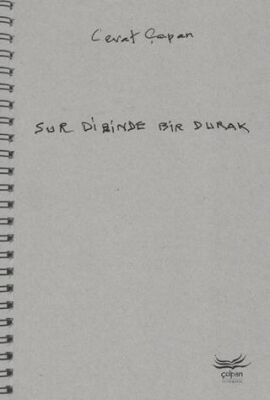 Cevat Çapan
SUR DİBİNDE BİR DURAK
çapan